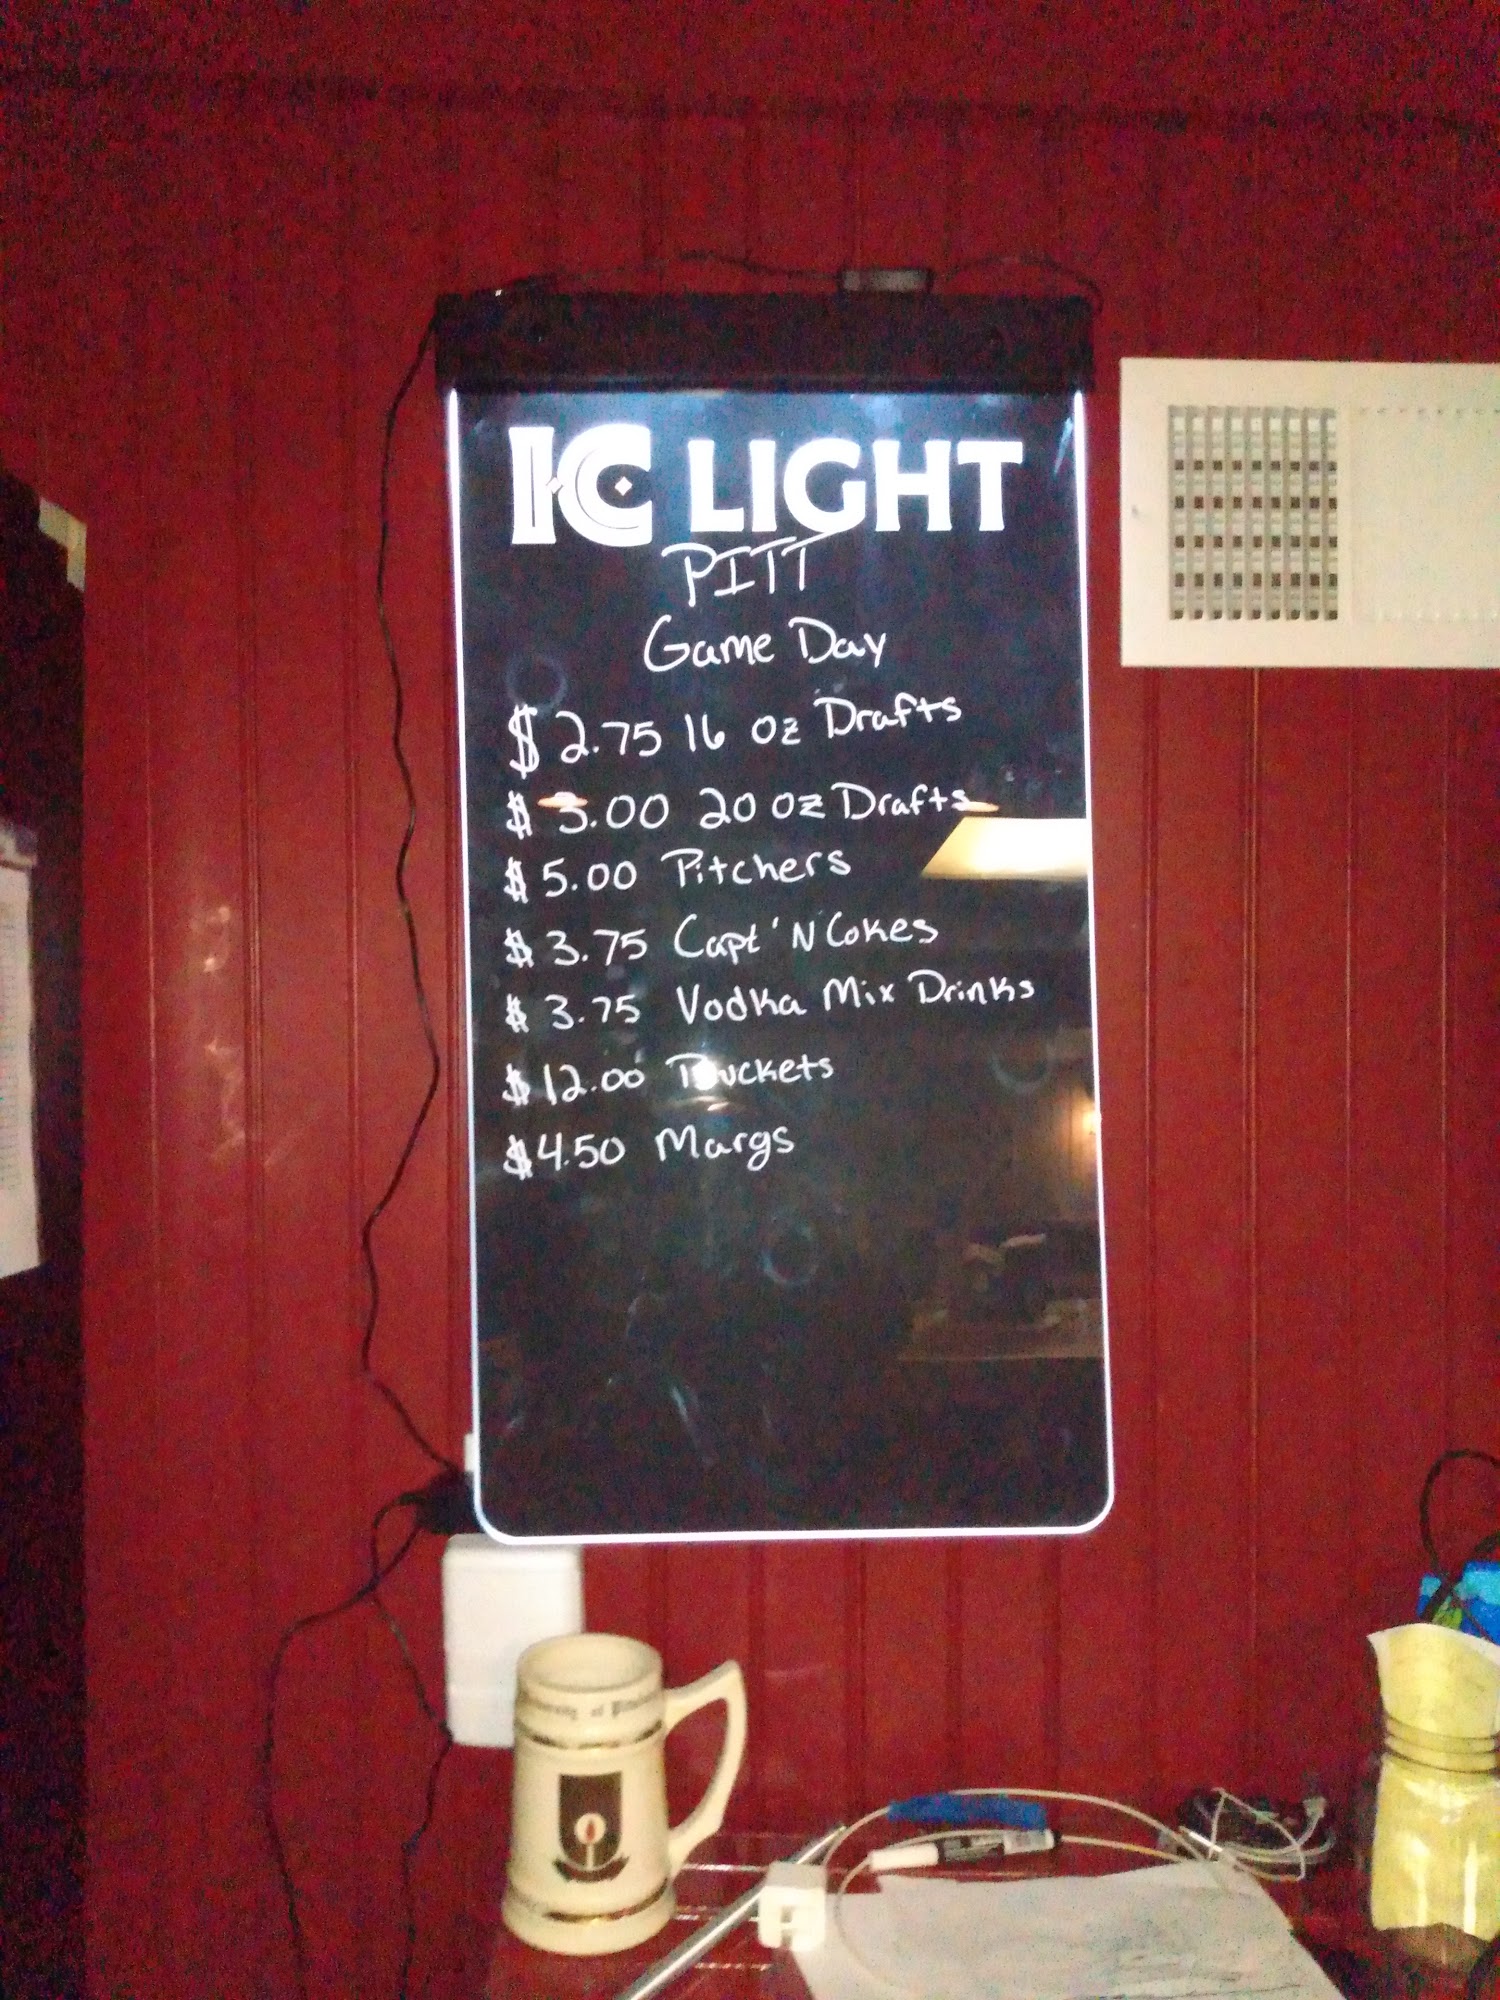 IC LIGHT
PITT
Game Day
$2.75 16 oz Drafts
$3.00 20 oz Drafts
$5.00 Pitchers
$3.75 Capt 'N Cokes
$3.75 Vodka Mix Drinks
$12.00 Buckets
$4.50 Margs
of